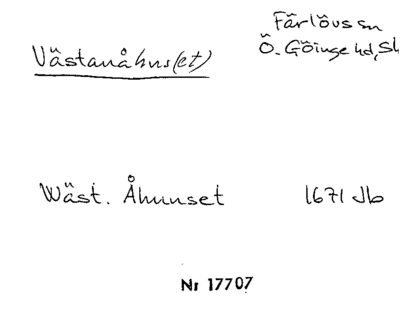 Färlövs sn
Västanåhus(et) Ö. Göinge hd, Sk
Wäst. Åhunset 1671 Jb
Nr 17707